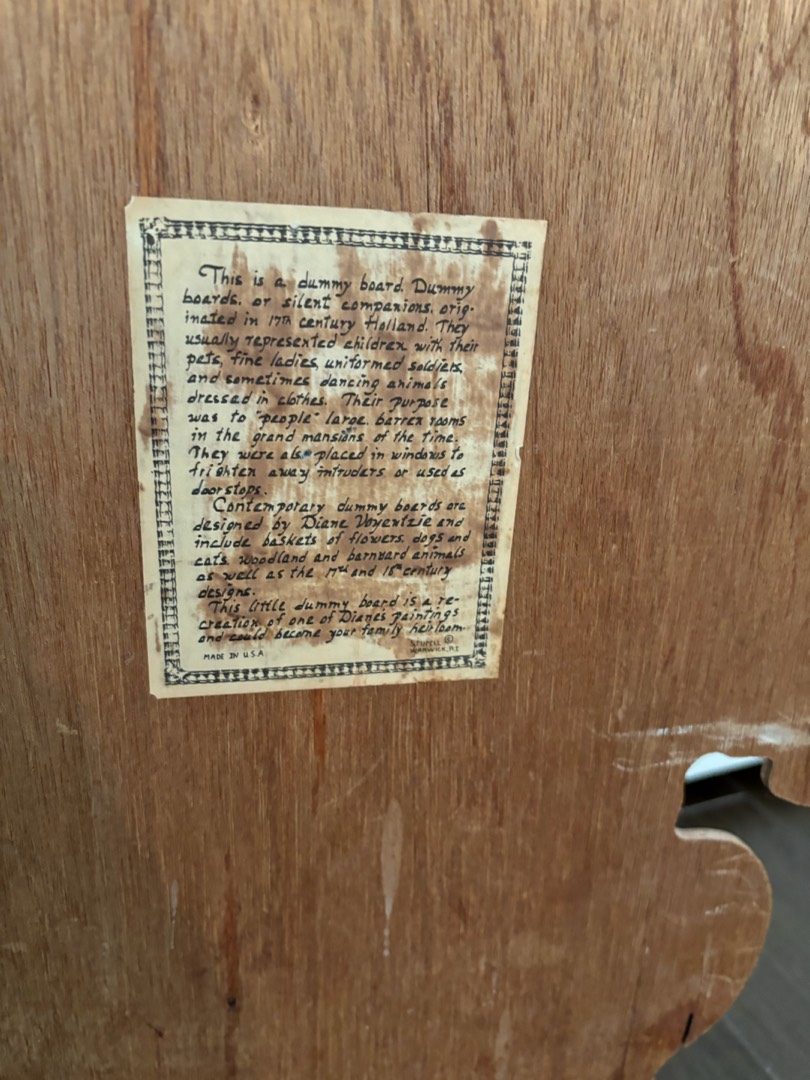 This is a dummy board. Dummy
boards, or silent companions, orig-
inated in 17TH century Holland. They
usually represented children with their
pets, fine ladies, uniformed soldiers,
and sometimes dancing animals
dressed in clothes. Their purpose
was to "people" large, barren rooms
in the grand mansions of the time.
They were also placed in windows to
frighten away intruders or used as
doorstops.
Contemporary dummy boards are
designed by Diane Voyentzie and
include baskets of flowers, dogs and
cats, woodland and barnyard animals
as well as the 17th and 18th century
designs.
This little dummy board is a re-
creation of one of Diane's paintings
and could become your family heirloom.
MADE IN U.S.A.
STUPELL ©
WARWICK, R.I.